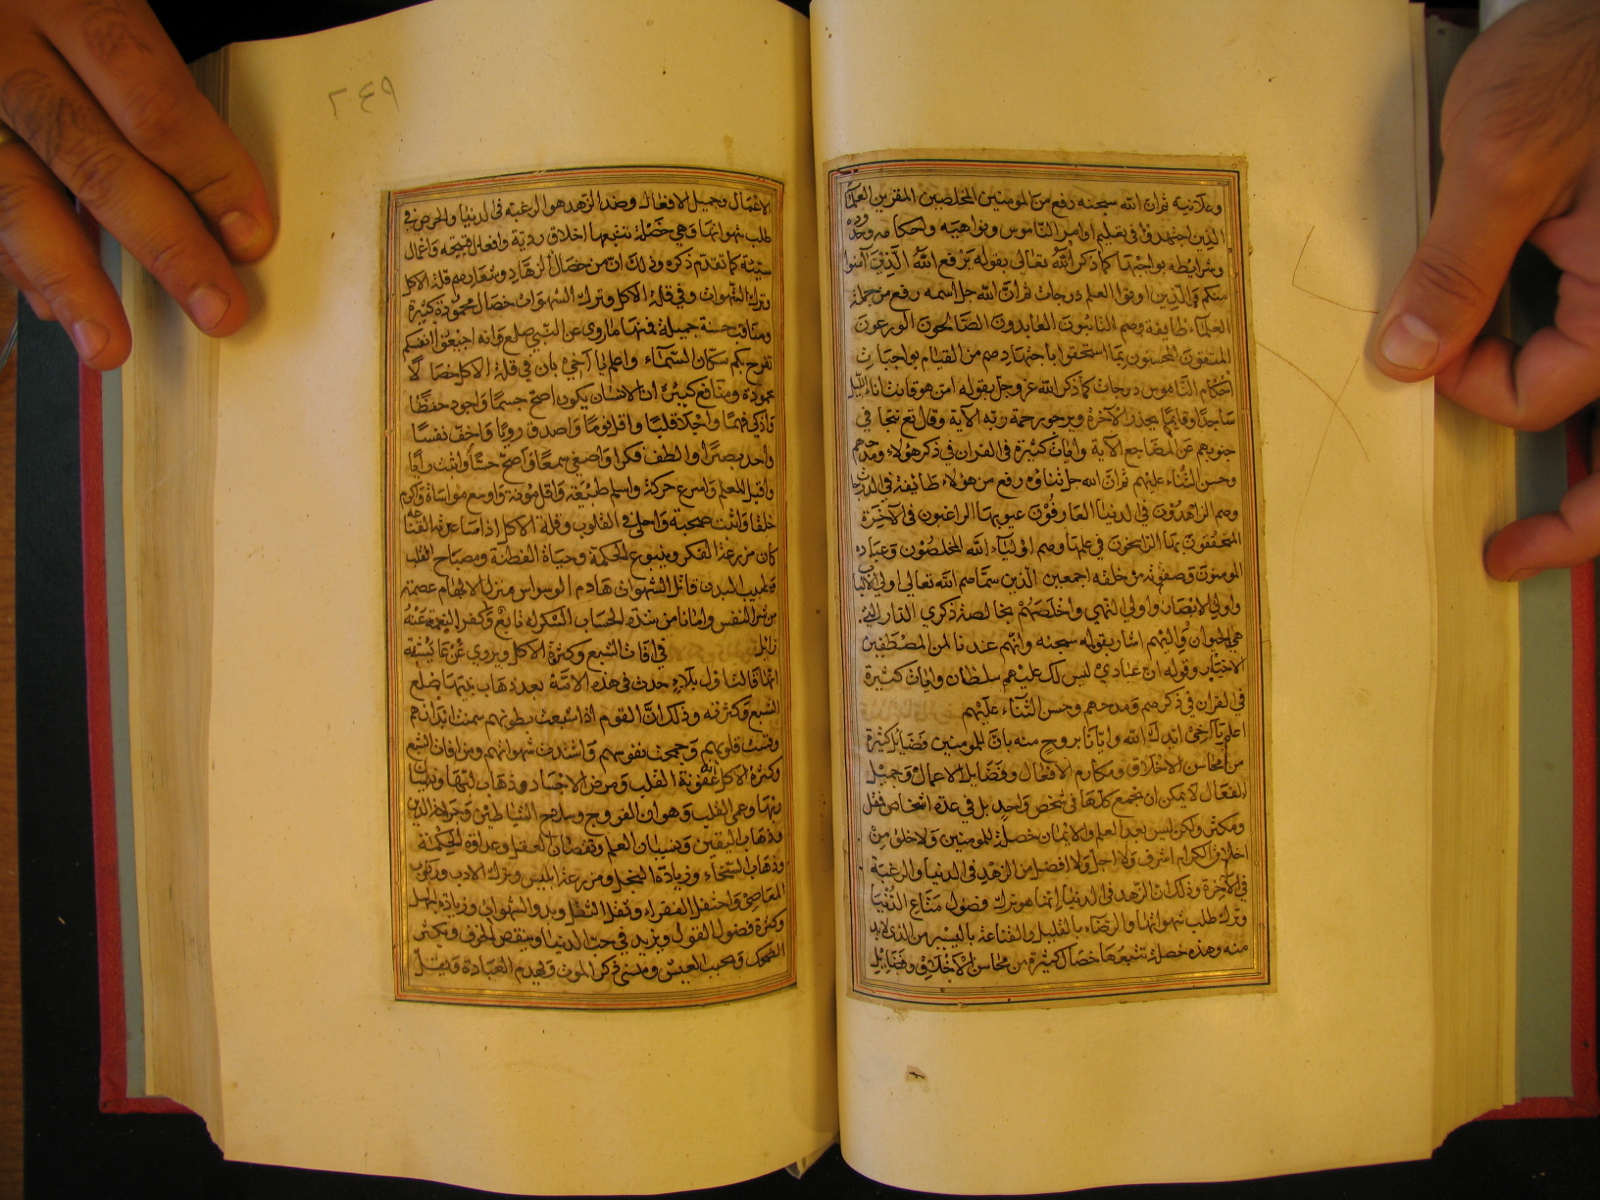 وعلانيته ثم ان الله سبحنه رفع من المومنين المخلصين المقرين العلماء
الذين اجتهدوا في تعليم اوامر الناموس ونواهيه واحكامه وحدوده
وشرايطه بواجبها كما ذكر الله تعالى بقوله يرفع الله الذين آمنوا
منكم والذين اوتوا العلم درجات ثم ان الله جل اسمه رفع من جملة
العلماء طايفة وهم التائبون العابدون الصالحون الورعون
المتقون المحسنون بما استحقوا باجتهادهم من القيام بواجبات
احكام الناموس درجات كما ذكر الله عز وجل بقوله امن هو قانت اناء الليل
ساجدا وقايما يحذر الآخرة ويرجو رحمة ربه الآية وقال تع تتجافى
جنوبهم عن المضاجع الآية وايات كثيرة في القران في ذكر هؤلاء ومدحهم
وحسن الثناء عليهم ثم ان الله جل ثناؤه رفع من هولاء طايفة في الدرجات
وهم الزاهدون في الدنيا العارفون عيوبها الراغبون في الآخرة
المتحققون بها الراسخون في علمها وهم اولياء الله المخلصون وعباده
المومنون وصفوته من خلقه اجمعين الذين سماهم الله تعالى اولي الالباب
واولي الابصار واولي النهي واخلصهم بخالصة ذكري الدار التي
هي الحيوان واليهم اشار بقوله سبحنه وانهم عندنا لمن المصطفين
الاخيار وقوله ان عبادي ليس لك عليهم سلطان وايات كثيرة
في القران في ذكرهم ومدحهم وحسن الثناء عليهم
اعلم يا اخي ايدك الله وايانا بروح منه بان للمومنين فضايل كثيرة
من محاسن الاخلاق ومكارم الافعال وفضايل الاعمال وجميل
الفعال لا يمكن ان تجمع كلها في شخص واحد بل في عدة اشخاص فمقل
ومكثر ولكن ليس بعد العلم والايمان خصلة للمومنين ولا خلق من
اخلاق الكرام اشرف ولا اجل ولا افضل من الزهد في الدنيا والرغبة
في الآخرة وذلك ان الزهد في الدنيا انما هو ترك فضول متاع الدنيا
وترك طلب شهواتها والرضاء بالقليل والقناعة باليسير من الذي لا بد
منه وهذه خصلة تتبعها خصال كثيرة من محاسن الاخلاق وفضايل
٢٤٩
الاعمال وجميل الافعال وضد الزهد هو الرغبة في الدنيا والحرص في
طلب شهواتها وهي خصلة تتبعها اخلاق ردية وافعال قبيحه واعمال
سيئة كما تقدم ذكره وذلك ان من خصال الزهاد وشعارهم قلة الاكل
وترك الشهوات وفي قلة الاكل وترك الشهوات خصال محمودة كثيرة
ومناقب حسنة جميلة فمنها ما روي عن النبي صلع انه اجيعوا انفسكم
تفرح بكم سكان السماء واعلم يا اخي بان في قلة الاكل خصالا
محمودة ومنافع كثيره ان الانسان يكون اصح جسما واجود حفظا
واذكى فهما واجلا قلبا واقل نوما واصدق رويا واخف نفسا
واحد بصرا والطف فكرا واصغى سمعا واصح حسا واثبت رأيا
واقبل للعلم واسرع حركة واسلم طبيعة واقل مونة واوسع مواساة واكرم
خلقا واثبت صحبة واحلى في القلوب وقلة الاكل اذا سا عدته القناعة
كان مزرعة الفكر وينبوع الحكمة وحياة الفطنة ومصباح القلب
وطبيب البدن قاتل الشهوات هادم الوسواس منزل الالهام عصمة
من شر النفس وامانا من شدة الحساب الشكر له تابع وكفر النعمة عنه
زائل في افات الشبع وكثرة الاكل ويروي عن عايشة
انها قالت اول بلاء حدث في هذه الامة بعد ذهاب نبيها صلع
الشبع وكثرته وذلك ان القوم اذا شبعت بطونهم سمنت ابدانهم
وقست قلوبهم وجمحت نفوسهم واشتدت شهواتهم ومن افات الشبع
وكثرة الاكل عفونة القلب ومرض الاجساد وذهاب البها ونسيان
ربها وعمى القلب وهوان الفروج وسلاح الشياطين
وذهاب اليقين ونسيان العلم ونقصان العقل وعداوة الحكمة
وذهاب السخاء وزيادة البخل ومزرعة ابليس وترك الادب وركوب
المعاصي واحتقار الفقراء وثقل النفل وبدو الشهوات وزيادة الجهل
وكثرة فضول القول ويزيد في حب الدنيا وينقص الخوف ويكثر
الضحك ويحبب العيش وينسي ذكر الموت ويهدم العبادة ويقل